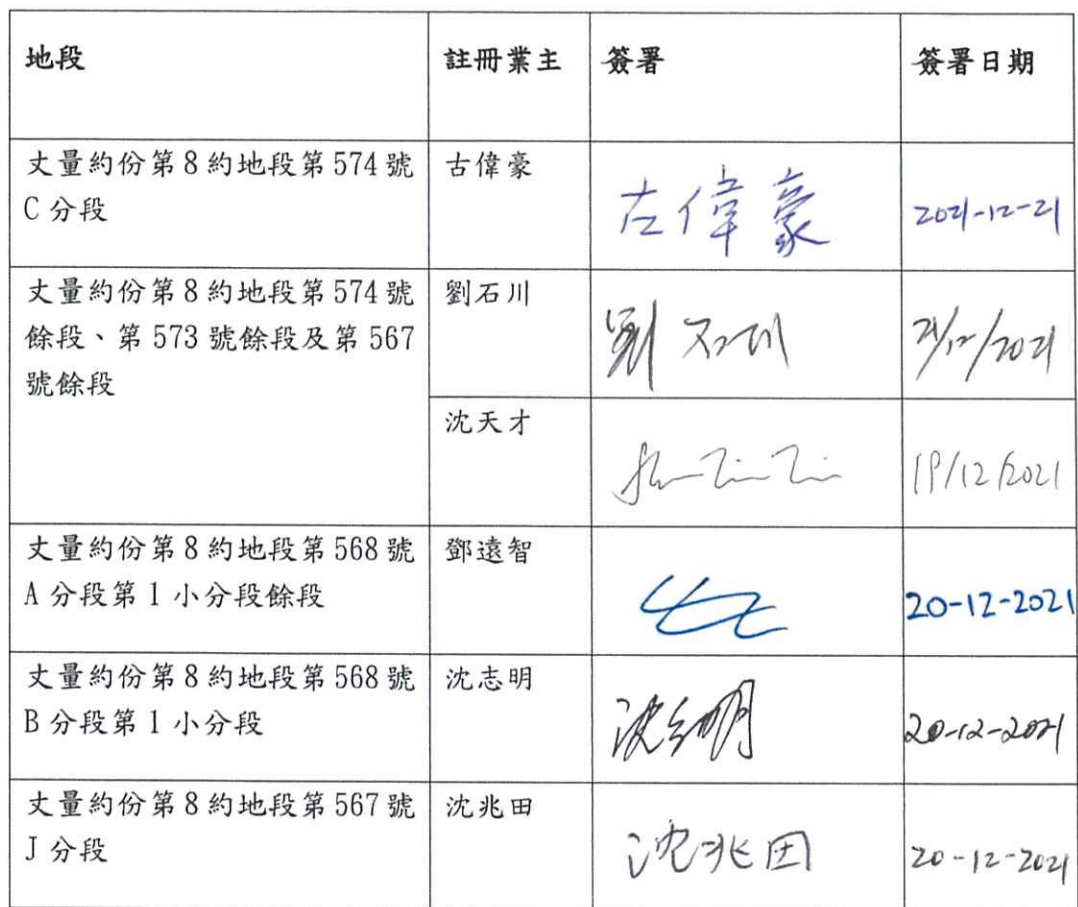 地段 註冊業主 簽署 簽署日期
丈量約份第8約地段第574號 古偉豪
C分段 古偉豪 2021-12-21
丈量約份第8約地段第574號 劉石川
餘段、第573號餘段及第567 劉石川 21/12/2021
號餘段
沈天才
19/12/2021
丈量約份第8約地段第568號 鄧遠智
A分段第1小分段餘段 20-12-2021
丈量約份第8約地段第568號 沈志明
B分段第1小分段 沈志明 20-12-2021
丈量約份第8約地段第567號 沈兆田
J分段 沈兆田 20-12-2021